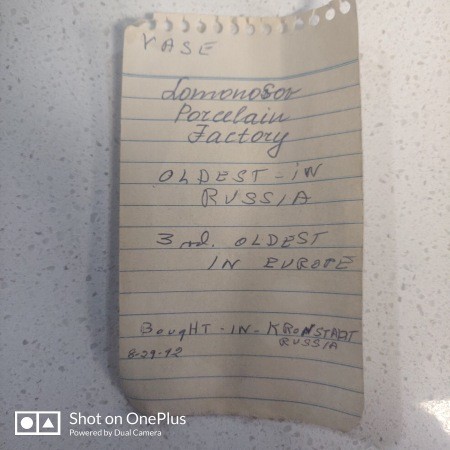 VASE
Lomonosov
Porcelain
Factory
OLDEST - IN
RUSSIA
3rd. OLDEST
IN EUROPE
BougHT - IN - KRONSTADT
RUSSIA
8-29-92
Shot on OnePlus
Powered by Dual Camera